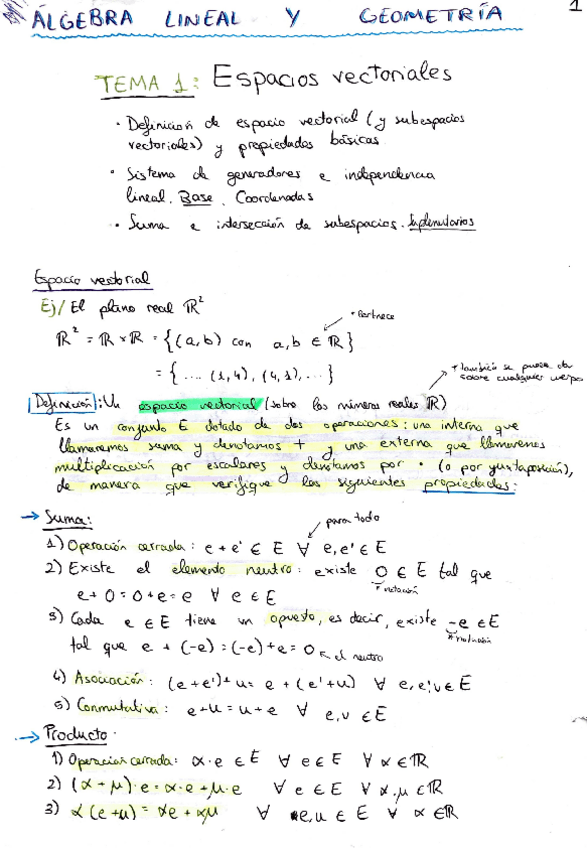 1
ÁLGEBRA LINEAL Y GEOMETRÍA
TEMA 1: Espacios vectoriales
• Definición de espacio vectorial (y subespacios
vectoriales) y propiedades básicas
• Sistema de generadores e independencia
lineal. Base. Coordenadas
• Suma e intersección de subespacios. Suplementarios
Espacio vectorial
Ej/ El plano real ℝ²
• Pertenece
ℝ² = ℝ × ℝ = {(a,b) con a,b ∈ ℝ}
= {.... (1,4), (4,1), ...}
* también se puede
sobre cualquier cuerpo
Definición: Un espacio vectorial (sobre los números reales ℝ)
Es un conjunto E dotado de dos operaciones: una interna que
llamaremos suma y denotamos + y una externa que llamaremos
multiplicación por escalares y denotamos por · (o por yuxtaposición),
de manera que verifique las siguientes propiedades:
→ Suma:
para todo
1) Operación cerrada: e + e' ∈ E ∀ e,e' ∈ E
2) Existe el elemento neutro: existe 0 ∈ E tal que
* notación
e + 0 = 0 + e = e ∀ e ∈ E
3) Cada e ∈ E tiene un opuesto, es decir, existe -e ∈ E
* notación
tal que e + (-e) = (-e) + e = 0
el neutro
4) Asociación: (e+e')+u = e + (e'+u) ∀ e,e',u ∈ E
5) Conmutativa: e+u = u+e ∀ e,u ∈ E
→ Producto·
1) Operación cerrada: α·e ∈ E ∀ e ∈ E ∀ α ∈ ℝ
2) (α+μ)·e = α·e + μ·e ∀ e ∈ E ∀ α,μ ∈ ℝ
3) α(e+u) = αe + αu ∀ e,u ∈ E ∀ α ∈ ℝ